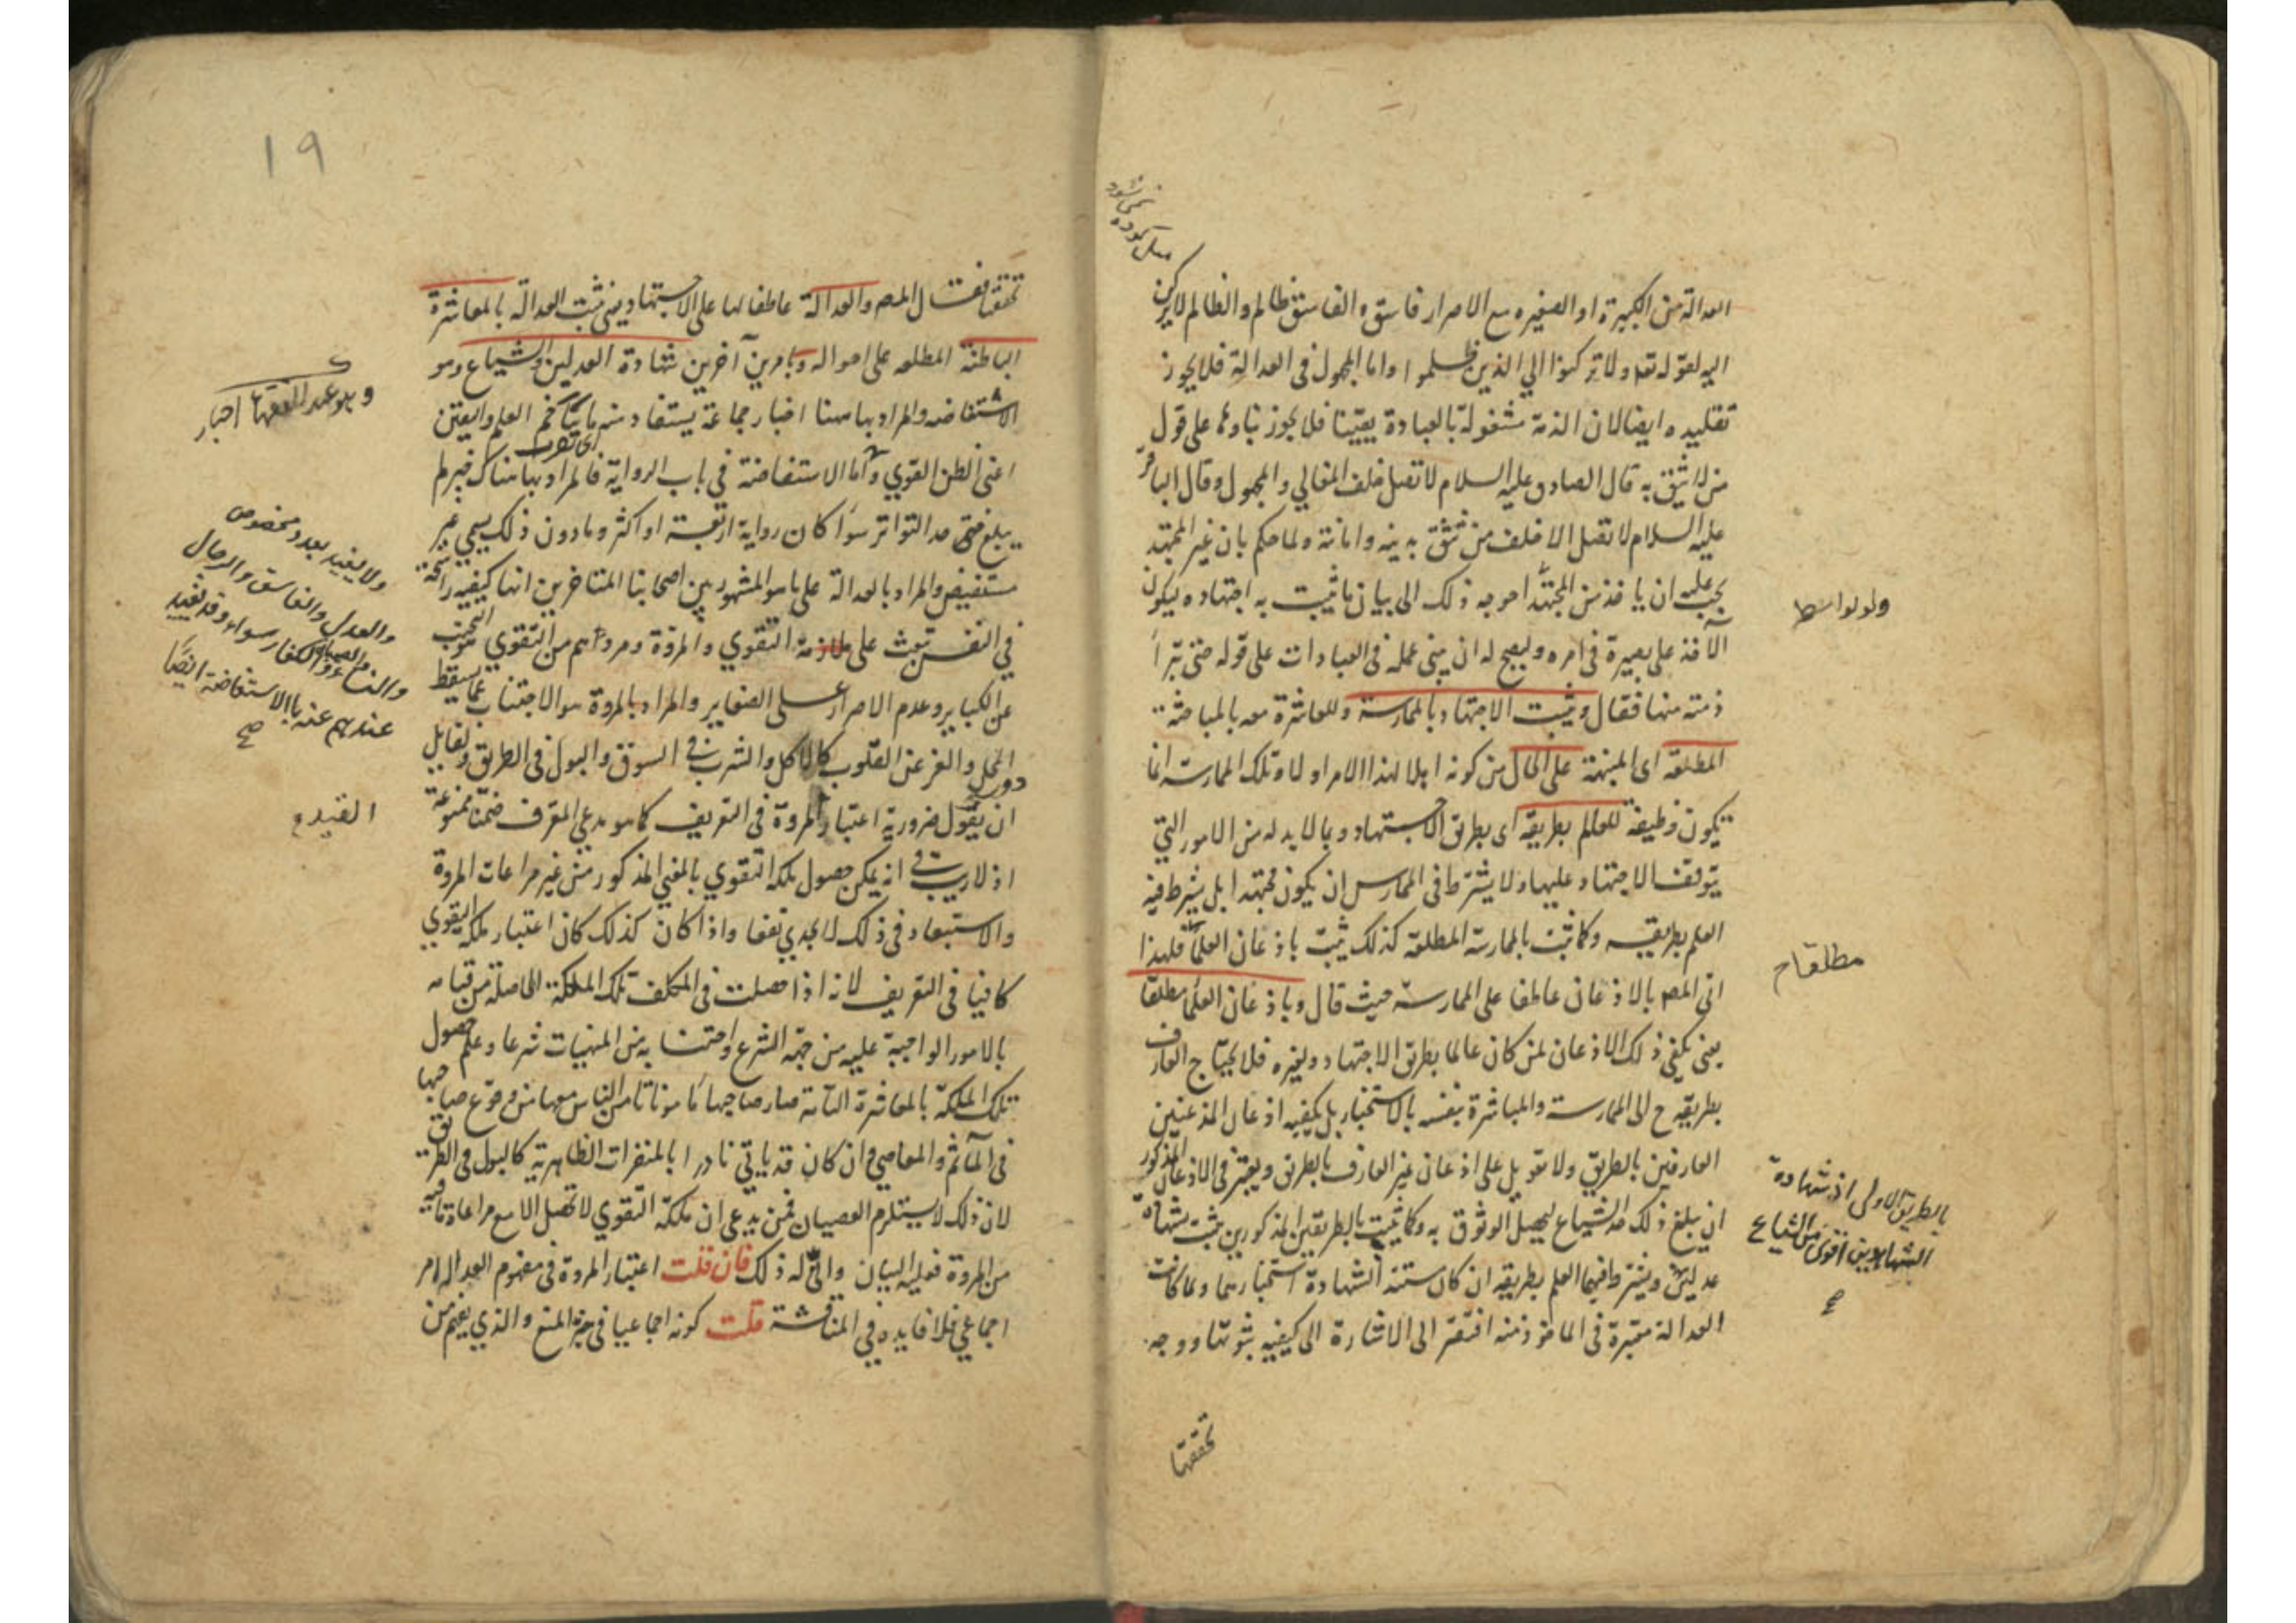 العدالة من الكبيرة او الصغيره مع الاصرار فاسق والفاسق ظالم والظالم لا يركن
اليه لقوله تعه ولا تركنوا الي الذين ظلموا واما المجهول في العدالة فلا يجوز
تقليده وايضا لان الذمة مشغولة بالعبادة يقينا فلا يجوز بناؤها على قول
من لا يثق به قال الصادق عليه السلام لا تصل خلف الغالي والمجهول وقال الباقر
عليه السلام لا تصل الا خلف من تثق بدينه وامانته ولما حكم بان غير المجتهد
يجب عليه ان ياخذ من المجتهد احوجه ذلك الى بيان ما يثبت به اجتهاده ليكون
الاخذ على بصيرة في امره وليصح له ان يبنى عمله في العبادات على قوله حتى تبرأ
ذمته منها فقال ويثبت الاجتهاد بالممارسة والمعاشرة معه بالمباحثة
المطلعة اى المنبهة على الحال من كونه اهلا لهذا الامر او لا وتلك الممارسة انما
تكون وظيفة للعالم بطريقه اى بطريق الاجتهاد وبما لا بد له من الامور التي
يتوقف الاجتهاد عليها ولا يشترط في الممارس ان يكون مجتهدا بل يشترط فيه
العلم بطريقه وكما تثبت بالممارسة المطلعة كذلك يثبت باذعان العلماء فلهذا
اتى المصه بالاذعان عاطفا على الممارسة حيث قال وباذعان العلماء مطلقا
يعنى يكفي ذلك الاذعان لمن كان عالما بطريق الاجتهاد وغيره فلا يحتاج العارف
بطريقه ح الى الممارسة والمباشرة بنفسه بالاستخبار بل يكفيه اذعان المذعنين
العارفين بالطريق ولا تعويل على اذعان غير العارف بالطريق ويعتبر في الاذعان المذكور
ان يبلغ ذلك حد الشياع ليحصل الوثوق به وكما يثبت بالطريقين المذكورين يثبت بشهادة
عدلين ويشترط فيهما العلم بطريقه ان كان مستند الشهادة استخبارهما ولما كانت
العدالة معتبرة في الماخوذ منه افتقر الى الاشارة الى كيفيه ثبوتها ووجه
تحققها
ولو بواسطة
مطلقا ح
بالطريق الاولى اذ شهادة
الشاهدين اقوى من الشياع
صح
١٩
تحققها فقال المصه والعدالة عاطفا لها على الاجتهاد يعنى تثبت العدالة بالمعاشرة
الباطنة المطلعه على احواله وبامرين آخرين شهادة العدلين والشياع وهو
الاستفاضه والمراد بها هاهنا اخبار جماعة يستفاد منه ما يتاخم العلم واليقين
اى تقرب
اعنى الظن القوي واما الاستفاضة في باب الرواية فالمراد بها هناك خبر لم
يبلغ حد التواتر سواء كان رواية اربعة او اكثر وما دون ذلك يسمي غير
مستفيض والمراد بالعدالة على ما هو المشهور بين اصحابنا المتاخرين انها كيفيه راسخة
في النفس تبعث على ملازمة التقوي والمروة ومردهم من التقوي التجنب
عن الكباير وعدم الاصرار على الصغاير والمراد بالمروة هو الاجتناب عما يسقط
المحل والغر عن القلوب كالاكل والشرب في السوق والبول في الطريق ولقايل
ان يقول ضرورية اعتبار المروة في التعريف كما هو مدعي المعرف ضمنا ممنوعة
اذ لا ريب في انه يمكن حصول ملكه التقوي بالمعني المذكور من غير مراعات المروة
والاستبعاد في ذلك لا يجدي نفعا واذا كان كذلك كان اعتبار ملكه التقوي
كافيا في التعريف لانه اذا حصلت في المكلف تلك الملكة الحاصلة من قيامه
بالامور الواجبة عليه من جهة الشرع واجتنابه من المنهيات شرعا وعلم حصول
تلك الملكة بالمعاشرة التامة صار صاحبها مامونا تامن الناس معها من وقوع صاحبها
في المآثم والمعاصي وان كان قد ياتي نادرا بالمنفرات الظاهرية كالبول في الطريق
لان ذلك لا يستلزم العصيان فمن يدعى ان ملكة التقوي لا تحصل الا مع مراعاة تامة
من المروة فعليه البيان وانى له ذلك فان قلت اعتبار المروة في مفهوم العدالة امر
اجماعي فلا فايده في المناقشة قلت كونه اجماعيا في حيز المنع والذي يفهم من
وهو عند الفقهاء اخبار
ولا يفيد بعدد مخصوص
والعدل والفاسق والرجال
والنساء والصبيان والكفار سواء وقد تفيد
عندهم عنه بالاستفاضة ايضا
صح